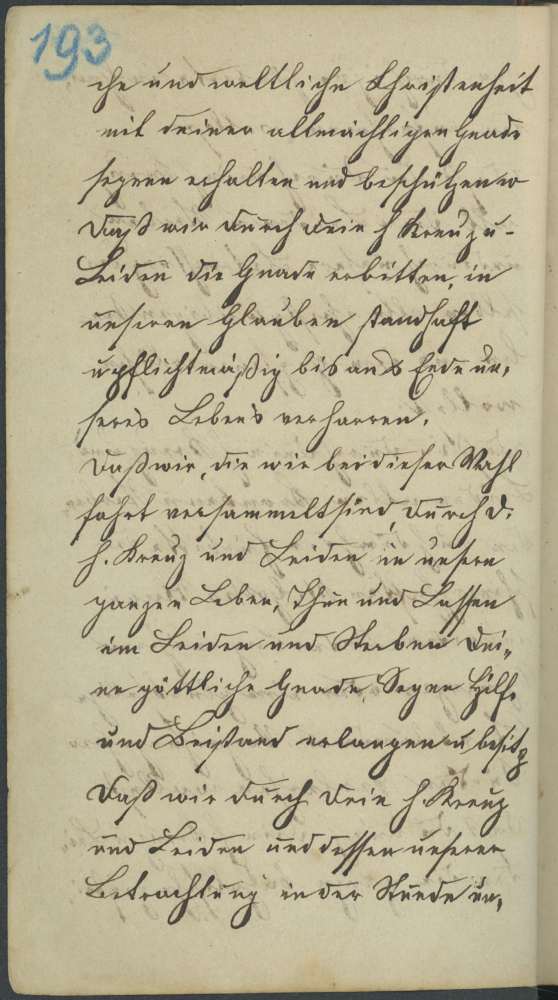 193
che und weltliche Christenheit
mit deiner allmächtigen Gnade
segnen erhalten und beschützen
Daß wir durch dein h Kreuz u-
Leiden die Gnade erbitten, in
unseren Glauben standhaft
u pflichtmäßig bis ans Ende un„
seres Lebens verharren.
Daß wir, die wir bei dieser Wahl
fahrt versammelt sind, durch d.
h. Kreuz und Leiden in unsern
ganzen Leben, Thun und Lassen
im Leiden und Sterben dei„
ne göttliche Gnade, Segen Hilfe
und Beistand erlangen u besitz
Daß wir durch dein h. Kreuz
und Leiden und dessen unserer
Betrachtung in der Stunde un„